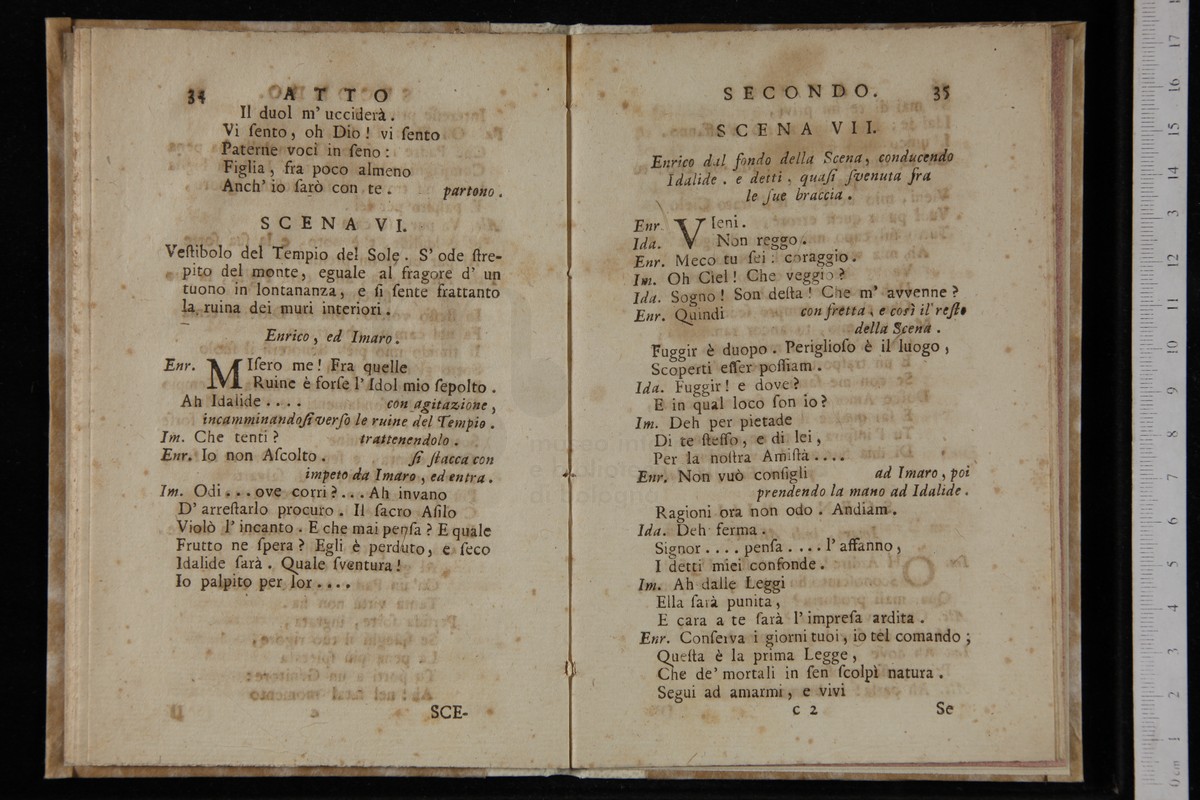 34 ATTO
Il duol m' ucciderà.
Vi ſento, oh Dio! vi ſento
Paterne voci in ſeno:
Figlia, fra poco almeno
Anch' io ſarò con te. partono.
SCENA VI.
Veſtibolo del Tempio del Sole. S' ode ſtre-
pito del monte, eguale al fragore d' un
tuono in lontananza, e ſi ſente frattanto
la ruina dei muri interiori.
Enrico, ed Imaro.
Enr. MIſero me! Fra quelle
Ruine è forſe l' Idol mio ſepolto.
Ah Idalide.... con agitazione,
incamminandoſi verſo le ruine del Tempio.
Im. Che tenti? trattenendolo.
Enr. Io non Aſcolto. ſi ſtacca con
impeto da Imaro, ed entra.
Im. Odi...ove corri?...Ah invano
D' arreſtarlo procuro. Il ſacro Aſilo
Violò l' incanto. E che mai penſa? E quale
Frutto ne ſpera? Egli è perduto, e ſeco
Idalide ſarà. Quale ſventura!
Io palpito per lor....
SCE-
SECONDO. 35
SCENA VII.
Enrico dal fondo della Scena, conducendo
Idalide. e detti, quaſi ſvenuta fra
le ſue braccia.
Enr. VIeni.
Ida. Non reggo.
Enr. Meco tu ſei: coraggio.
Im. Oh Ciel! Che veggio?
Ida. Sogno! Son deſta! Che m' avvenne?
Enr. Quindi con fretta, e così il reſto
della Scena.
Fuggir è duopo. Periglioſo è il luogo,
Scoperti eſſer poſſiam.
Ida. Fuggir! e dove?
E in qual loco ſon io?
Im. Deh per pietade
Di te ſteſſo, e di lei,
Per la noſtra Amiſtà....
Enr. Non vuò conſigli ad Imaro, poi
prendendo la mano ad Idalide.
Ragioni ora non odo. Andiam.
Ida. Deh ferma.
Signor.... penſa.... l' affanno,
I detti miei confonde.
Im. Ah dalle Leggi
Ella ſarà punita,
E cara a te ſarà l' impreſa ardita.
Enr. Conſerva i giorni tuoi, io tel comando;
Queſta è la prima Legge,
Che de' mortali in ſen ſcolpì natura.
Segui ad amarmi, e vivi
C 2 Se
museo in
e biblio
di bologna
0 cm 1 2 3 4 5 6 7 8 9 10 11 12 13 14 15 16 17